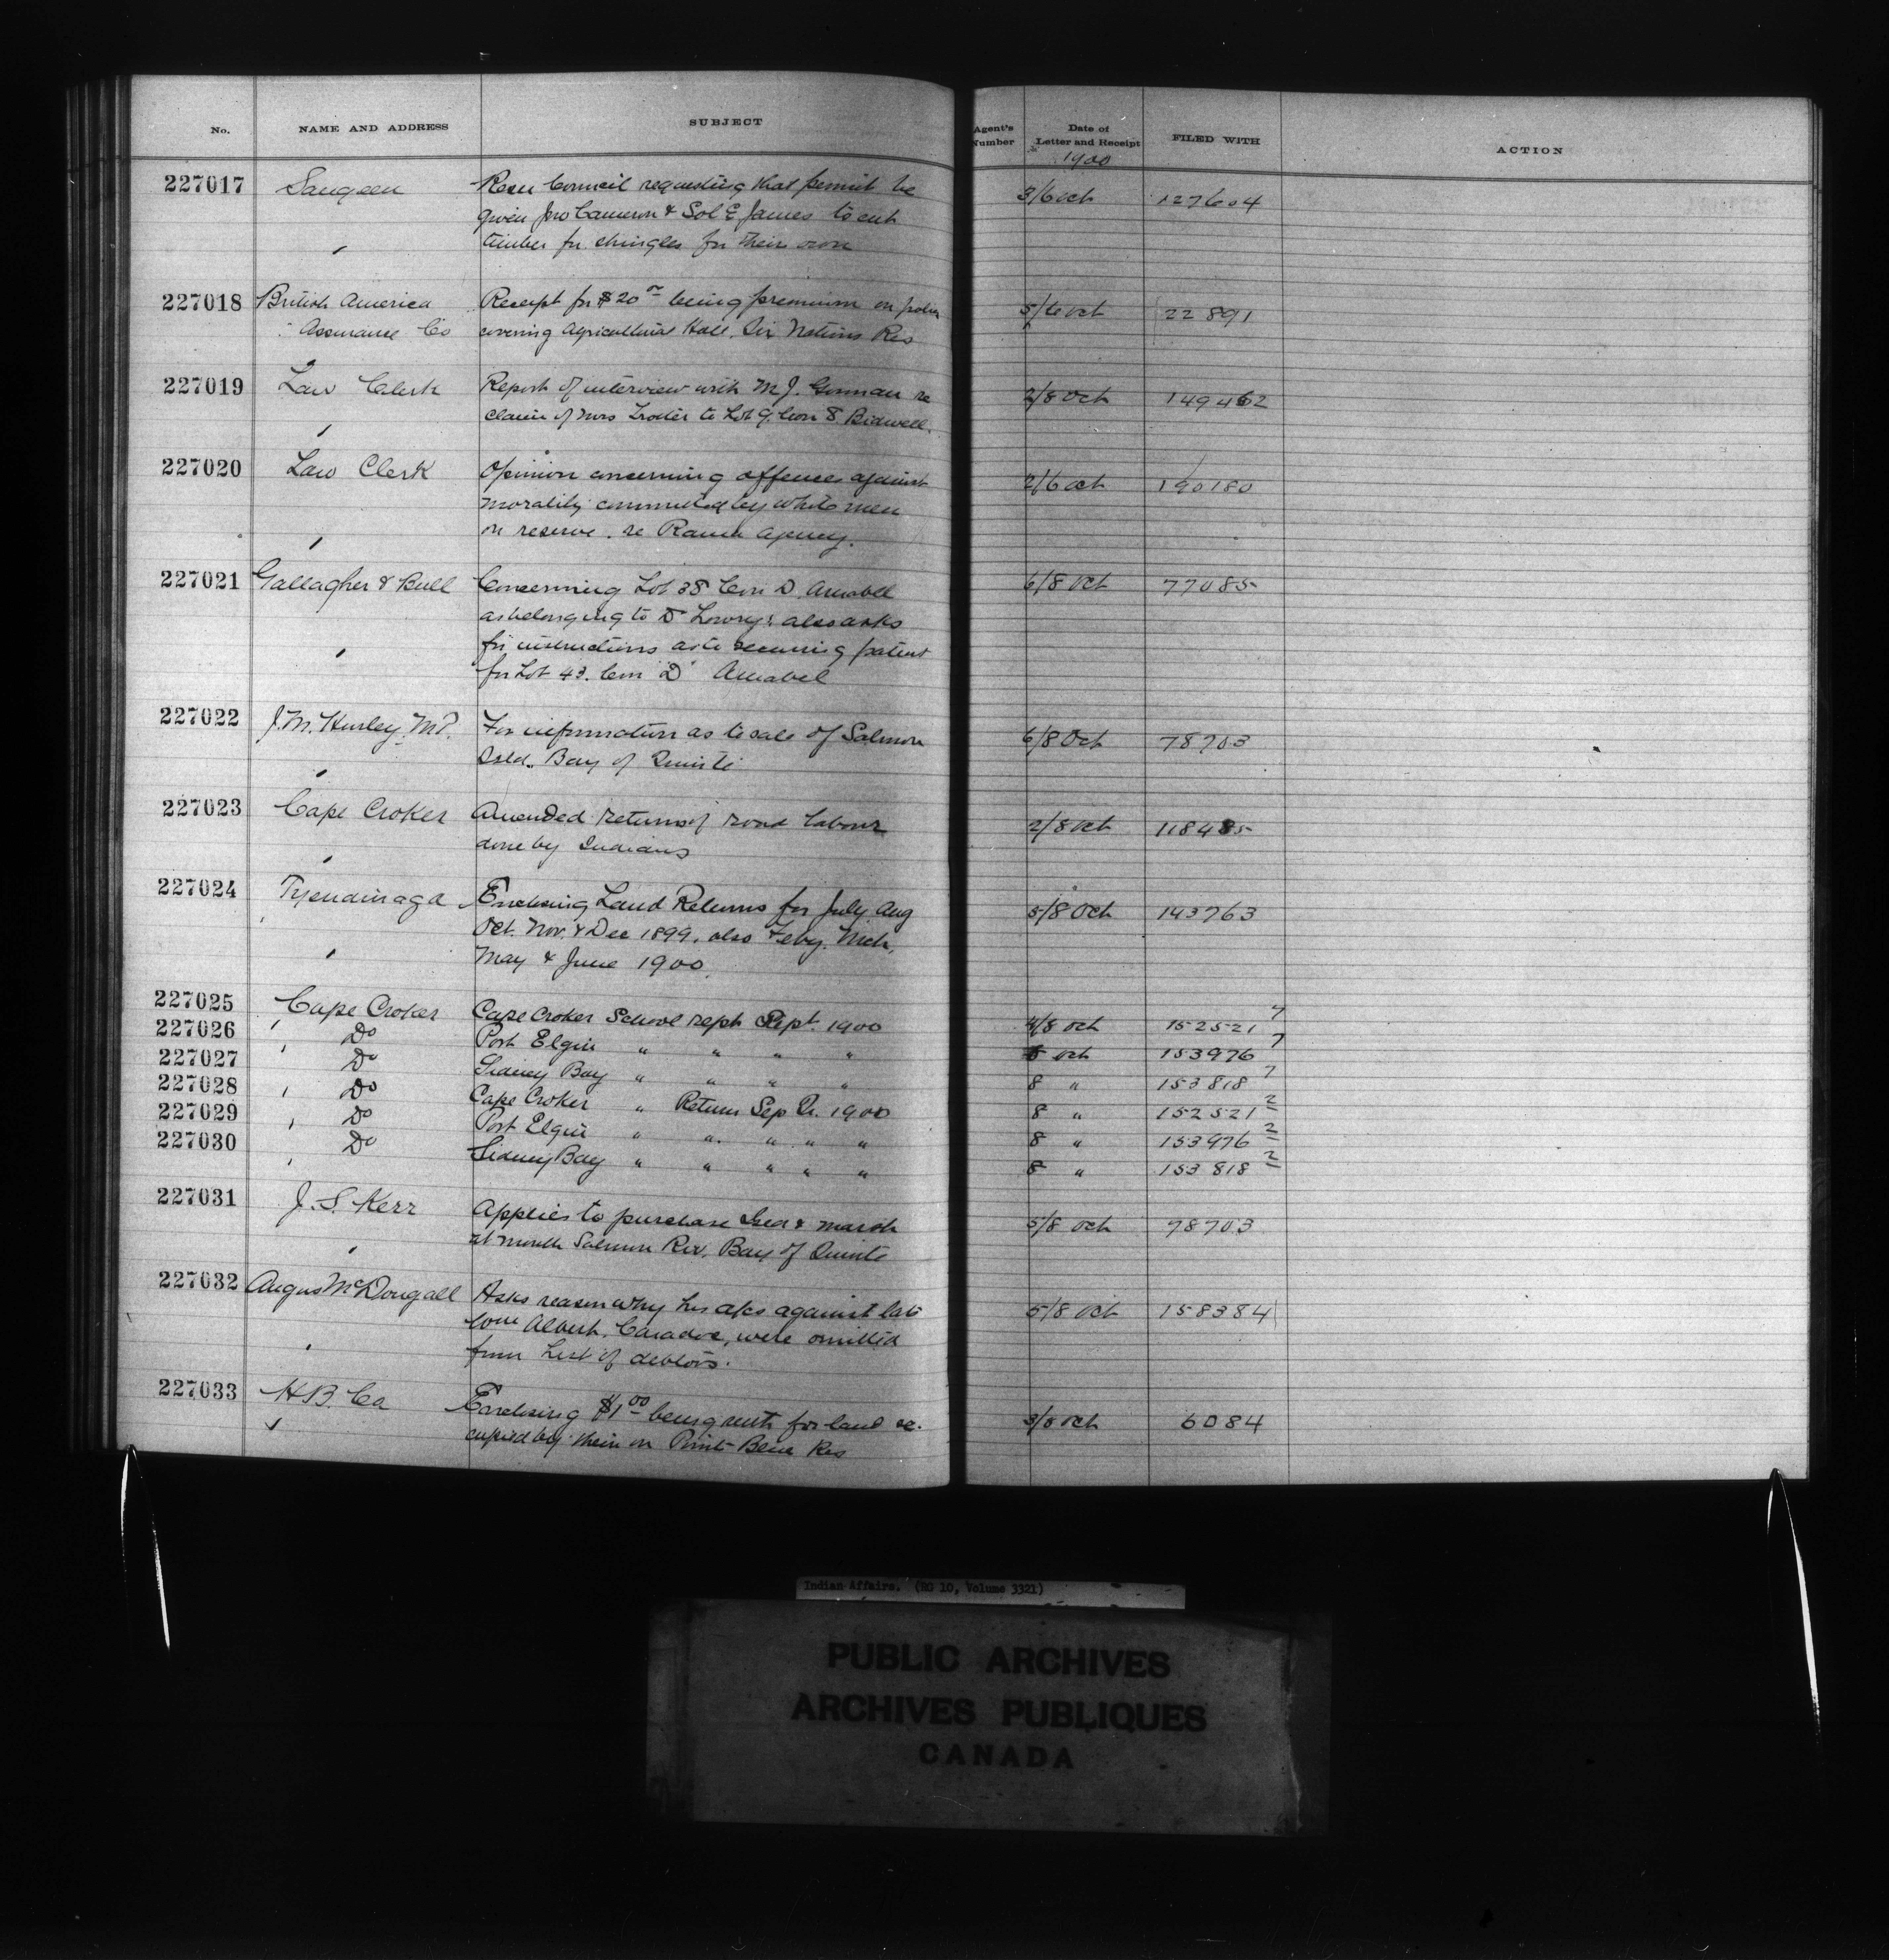 No. NAME AND ADDRESS SUBJECT Agent's Number Date of Letter and Receipt FILED WITH ACTION
1900
227017 Saugeen Resn Council requesting that permit be 3/6 Oct 127604
given Jno Cameron & Sol E James to cut
timber for shingles for their own
227018 British America Receipt for $20 00 being premium on policy 5/6 Oct 22891
Assurance Co covering Agricultural Hall. Six Nations Res
227019 Law Clerk Report of interview with M J. Gorman re 2/8 Oct 149462
claim of Mrs Trotter to Lot 9. Con 8 Bidwell.
227020 Law Clerk Opinion concerning offences against 2/6 Oct 190180
morality committed by white men
on reserve. re Rama Agency.
227021 Gallagher & Bull Concerning Lot 38 Con D. Amabel 6/8 Oct 77085
as belonging to D Lowry; also asks
for instructions as to securing patent
for Lot 43. Con "D" Amabel
227022 J.M. Hurley. M.P. For information as to sale of Salmon 6/8 Oct 78703
Isld. Bay of Quinte
227023 Cape Croker Amended returns of road labour 2/8 Oct 118485
done by Indians
227024 Tyendinaga Enclosing Land Returns for July Aug 5/8 Oct 143763
Oct. Nov. & Dec 1899. also Feby. Mch,
May & June 1900.
227025 Cape Croker Cape Croker School rept Sept. 1900 4/8 Oct 152521 7
227026 Do Port Elgin " " " " Oct 153976 7
227027 Do Sidney Bay " " " " 8 " 153818 7
227028 Do Cape Croker " Return Sep Qr. 1900 8 " 152521 2
227029 Do Port Elgin " " " " " 8 " 153976 2
227030 Do Sidney Bay " " " " " 8 " 153818 2
227031 J. S. Kerr Applies to purchase Isld & marsh 5/8 Oct 78703
at mouth Salmon Riv. Bay of Quinte
227032 Angus McDougall Asks reason why his a/cs against late 5/8 Oct 158384
Albert. Caradoc, were omitted
from List of debtors.
227033 H.B. Co Enclosing $1 00 being rent for land oc- 3/8 Oct 6084
cupied by them on Point Bleue Res
Indian Affairs. (RG 10, Volume 3321)
PUBLIC ARCHIVES
ARCHIVES PUBLIQUES
CANADA